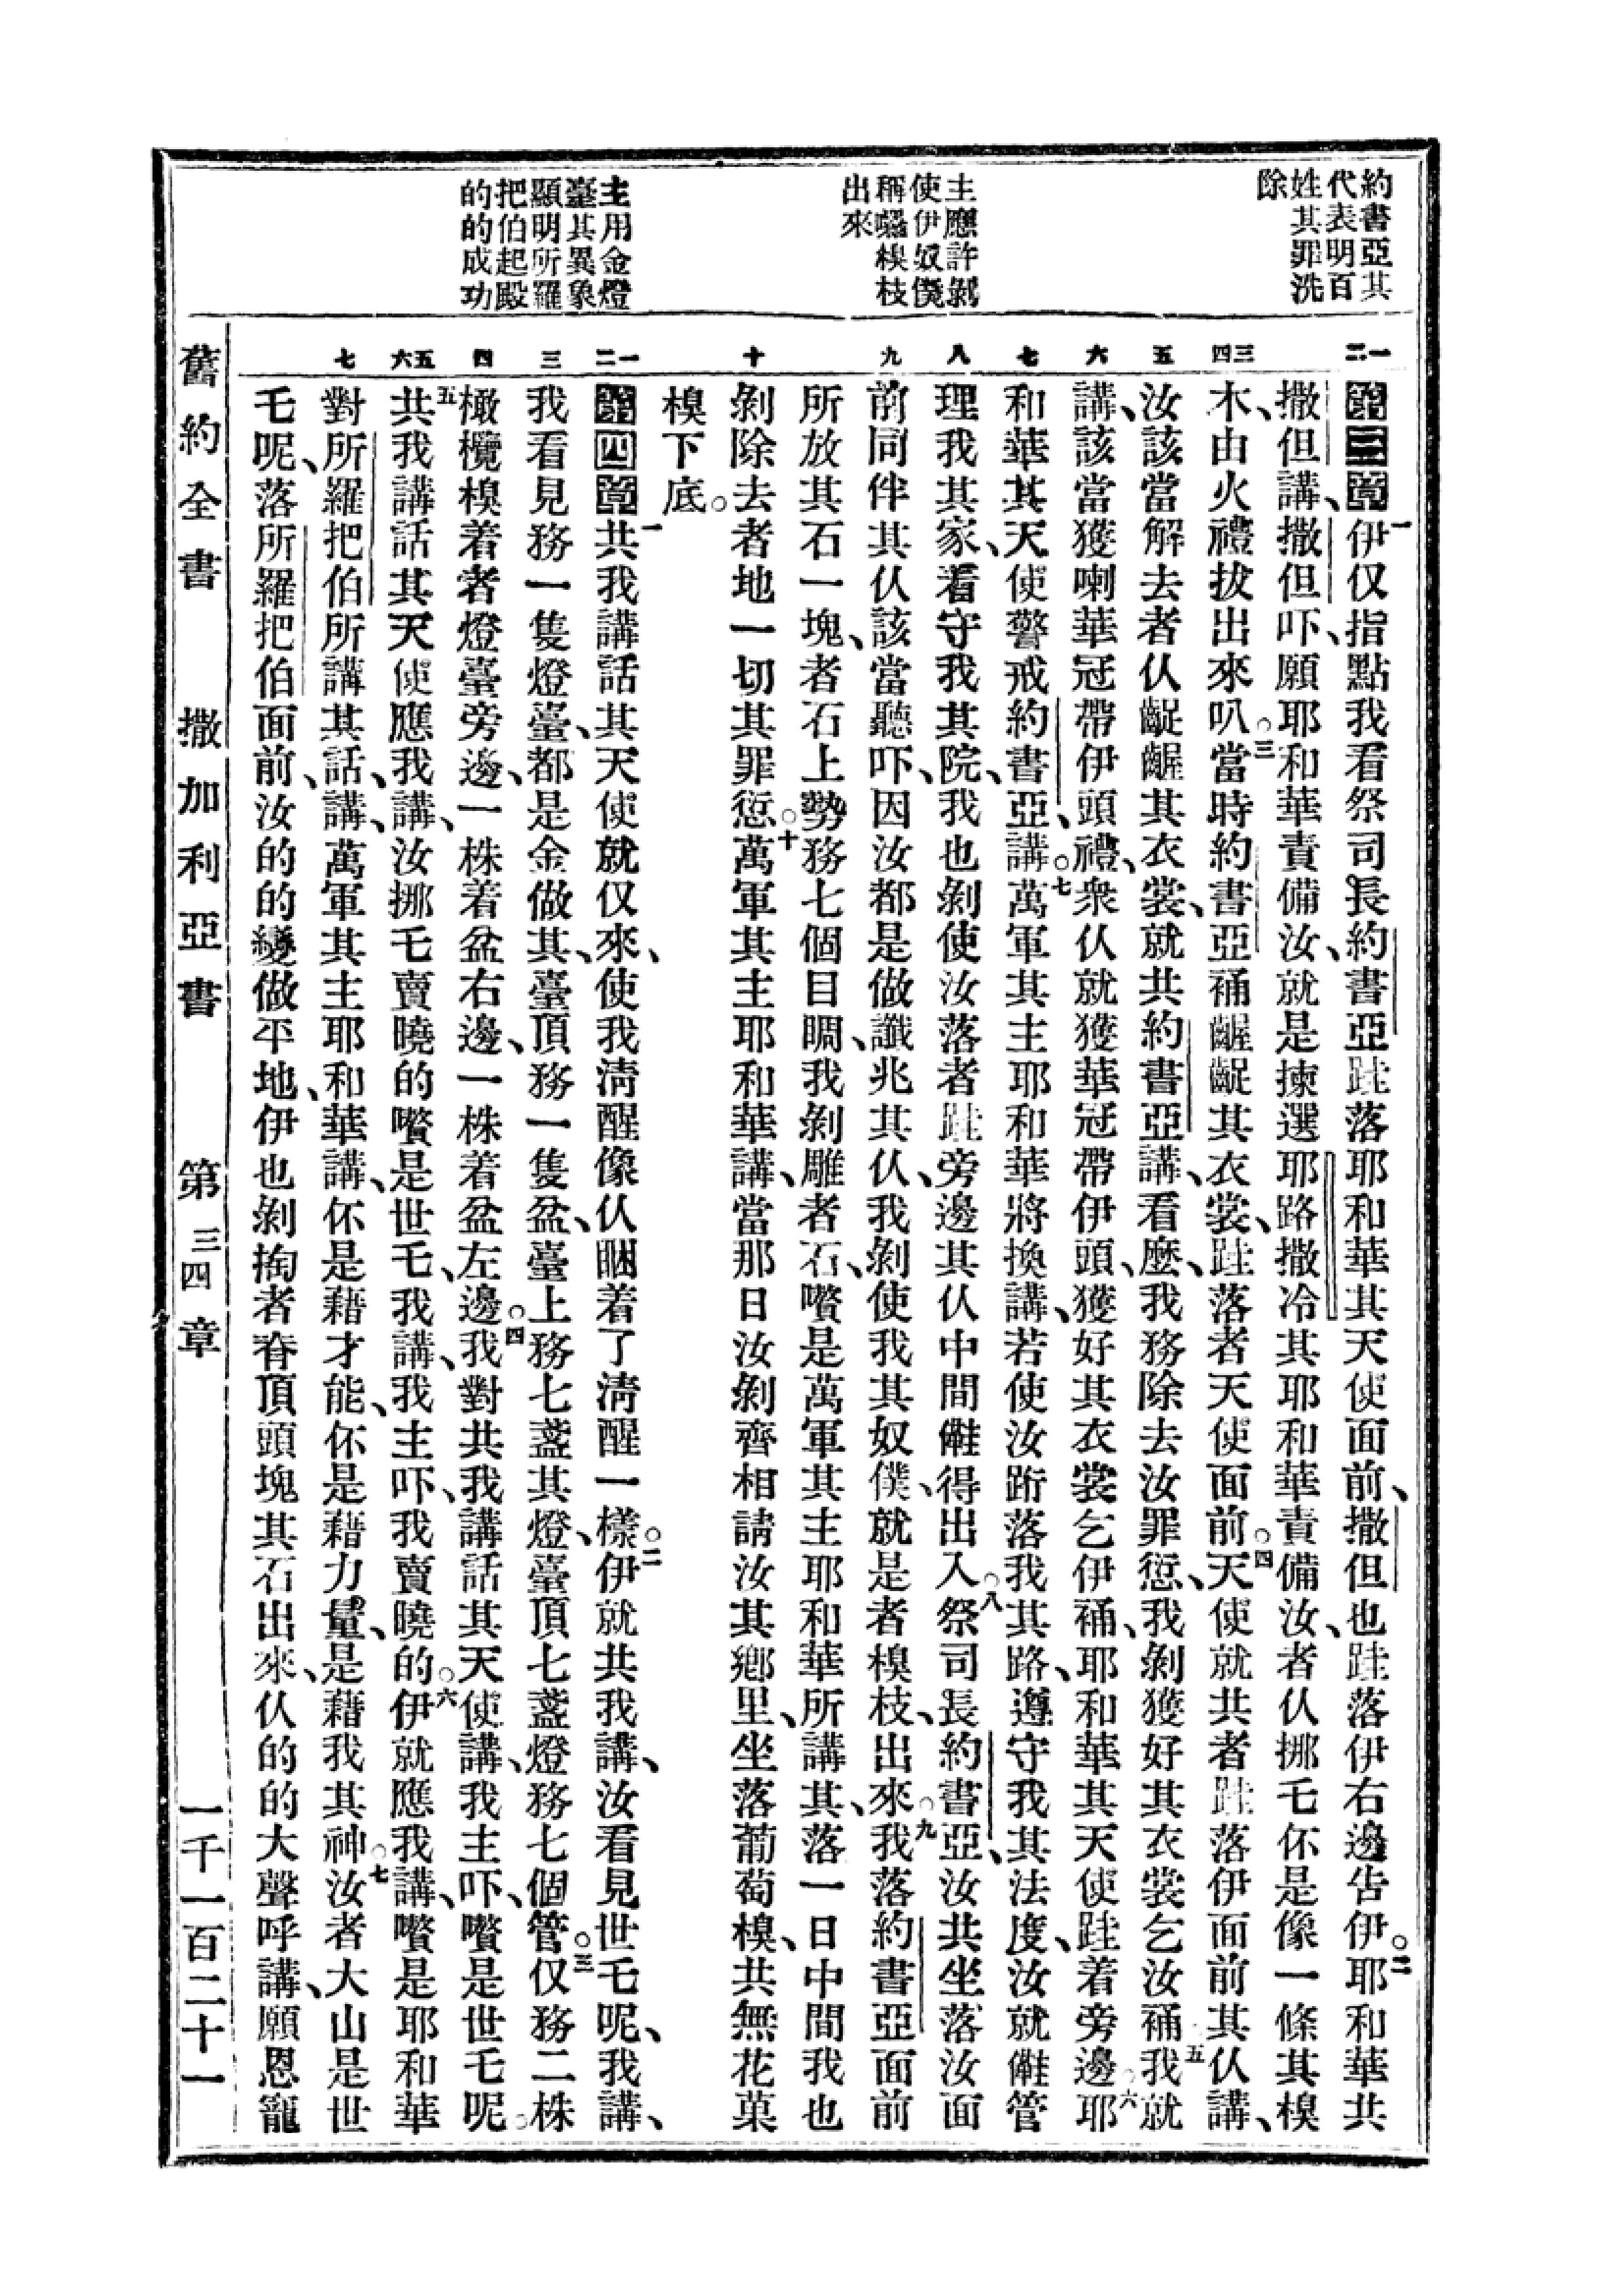 約書亞其
代表明百
姓其罪洗
除
主應許剝
使伊奴僕
稱囇樌枝
出來
主用金燈
臺其異象
顯明所羅
把伯起殿
的的成功
一二
三四
五
六
七
八
九
十
一二
三
四
五六
七
第三章一伊仅指點我看祭司長約書亞跬落耶和華其天使面前、撒但也跬落伊右邊告伊。二耶和華共
撒但講、撒但吓、願耶和華責備汝、就是揀選耶路撒冷其耶和華責備汝、者仈挪乇伓是像一條其樌
木、由火禮拔出來叭。三當時約書亞補齷齪其衣裳、跬落者天使面前。四天使就共者跬落伊面前其仈講、
汝該當解去者仈齪齷其衣裳、就共約書亞講、看麼、我務除去汝罪愆、我剝獲好其衣裳乞汝補五我就
講、該當獲喇華冠帶伊頭禮、衆仈就獲華冠帶伊頭、獲好其衣裳乞伊補、耶和華其天使跬着旁邊。六耶
和華其天使警戒約書亞、講。七萬軍其主耶和華將換講、若使汝跡落我其路、遵守我其法度、汝就㒕管
理我其家、看守我其院、我也剝使汝落者跬旁邊其仈中間㒕得出入。八祭司長約書亞、汝共坐落汝面
前同伴其仈、該當聽吓、因汝都是做讖兆其仈、我剝使我其奴僕、就是者樌枝、出來。九我落約書亞面前
所放其石一塊、者石上勢務七個目瞯、我剝雕者石、嚽是萬軍其主耶和華所講其、落一日中間我也
剝除去者地一切其罪愆。十萬軍其主耶和華講、當那日汝剝齊相請汝其鄉里、坐落葡萄樌、共無花菓
樌下底。
第四章一共我講話其天使就仅來、使我淸醒像仈睏着了淸醒一樣。二伊就共我講、汝看見世乇呢、我講、
我看見務一隻燈臺、都是金做其、臺頂務一隻盆、臺上務七盞其燈、臺頂七盞燈務七個管。三仅務二株
橄欖樌着者燈臺旁邊、一株着盆右邊、一株着盆左邊。四我對共我講話其天使講、我主吓、嚽是世乇呢。
五共我講話其天使應我講、汝挪乇賣曉的嚽是世乇、我講、我主吓、我賣曉的。六伊就應我講、嚽是耶和華
對所羅把伯所講其話、講、萬軍其主耶和華講、伓是藉才能、伓是藉力量、是藉我其神。七汝者大山是世
乇呢、落所羅把伯面前、汝的的變做平地、伊也剝掏者脊頂頭塊其石出來、仈的的大聲呼講、願恩寵
舊約全書 撒加利亞書 第三四章 一千一百二十一